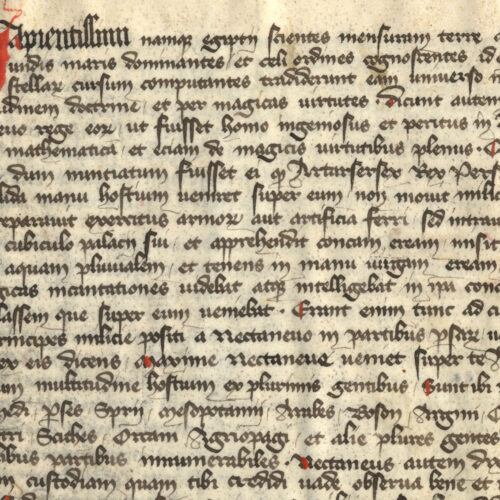 Sapientissimi namque egiptii scientes mensuram terre a
undis maris dominantes et celi ordines cognoscentes id e
stellar cursum computantes tradiderunt eam universo m
udinem doctrine et per magicas virtutes . Dicunt autem
neuo rege eor ut fuisset homo ingeniosus et peritus in
mathematica et eciam de magicis virtutibus plenus .
dum nunciatum fuisset ei qz Artarserser Rex Pers
lida manu hostium veniret super eum non movit milic
reparavit exercitus armor aut artificia ferri , sed intrav
cubiculo palacii sui et apprehendit concam eream , misit
aquam pluvialem , et tenens in manu virgam eream
gicas incantationes videbat atqz intelligebat in ipa conc
lassem que super eum veniebat . Erant enim tunc ad cu
rincipes milicie positi a Nectanevo in partibus psar
ex eis dicens , Maxime Nectaneve veniet super te A
um multitudine hostium ex plurimis gentibus , Sunt ibi
hedi Pses Syrii Mesopotamii , Arabes , Bosori Argini C
tri Scithes , Orcani Agriopagi , et alie plures gentes
ibus partibus innumerabiles . Nectaneus autem
m custodiam quam tibi credidi vade observa bene et